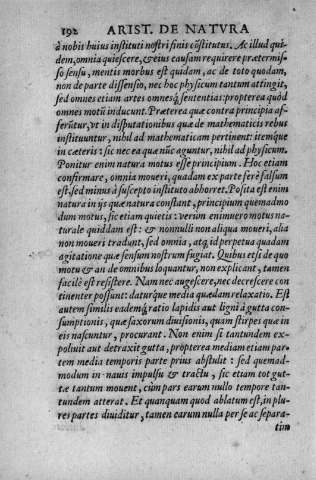 192 ARIST. DE NATVRA
à nobis huius instituti nostri finis cõstitutus. Ac illud qui-
dem, omnia quiescere, & eius causam requirere prætermis-
so sensu, mentis morbus est quidam, ac de toto quodam,
non de parte dissensio, nec hoc physicum tantum attingit,
sed omnes etiam artes omnesq́; sententias: propterea quòd
omnes motũ inducunt. Præterea quæ contra principia af-
ferũtur, vt in disputationibus quæ de mathematicis rebus
instituuntur, nihil ad mathematicam pertinent: itemq́ue
in cæteris: sic nec ea quæ nũc aguntur, nihil ad physicum.
Ponitur enim natura motus esse principium. Hoc etiam
confirmare, omnia moueri, quadam ex parte ferè falsum
est, sed minùs à suscepto instituto abhorret. Posita est enim
natura in ijs quæ natura constant, principium quemadmo
dum motus, sic etiam quietis: verùm enimuero motus na-
turale quiddam est: & nonnulli non aliqua moueri, alia
non moueri tradunt, sed omnia, atq́; id perpetua quadam
agitatione quæ sensum nostrum fugiat. Quibus etsi de quo
motu & an de omnibus loquantur, non explicant, tamen
facilè est resistere. Nam nec augescere, nec decrescere con
tinenter possunt: daturq́ue media quædam relaxatio. Est
autem similis eademq́; ratio lapidis aut ligni à gutta con-
sumptionis, quæ saxorum diuisionis, quam stirpes quæ in
eis nascuntur, procurant. Non enim si tantundem ex-
poliuit aut detraxit gutta, propterea mediam etiam par-
tem media temporis parte prius abstulit: sed quemad-
modum in nauis impulsu & tractu, sic etiam tot gut-
tæ tantum mouent, cùm pars earum nullo tempore tan-
tundem atterat. Et quanquam quod ablatum est, in plu-
res partes diuiditur, tamen earum nulla per se ac separa-
tim